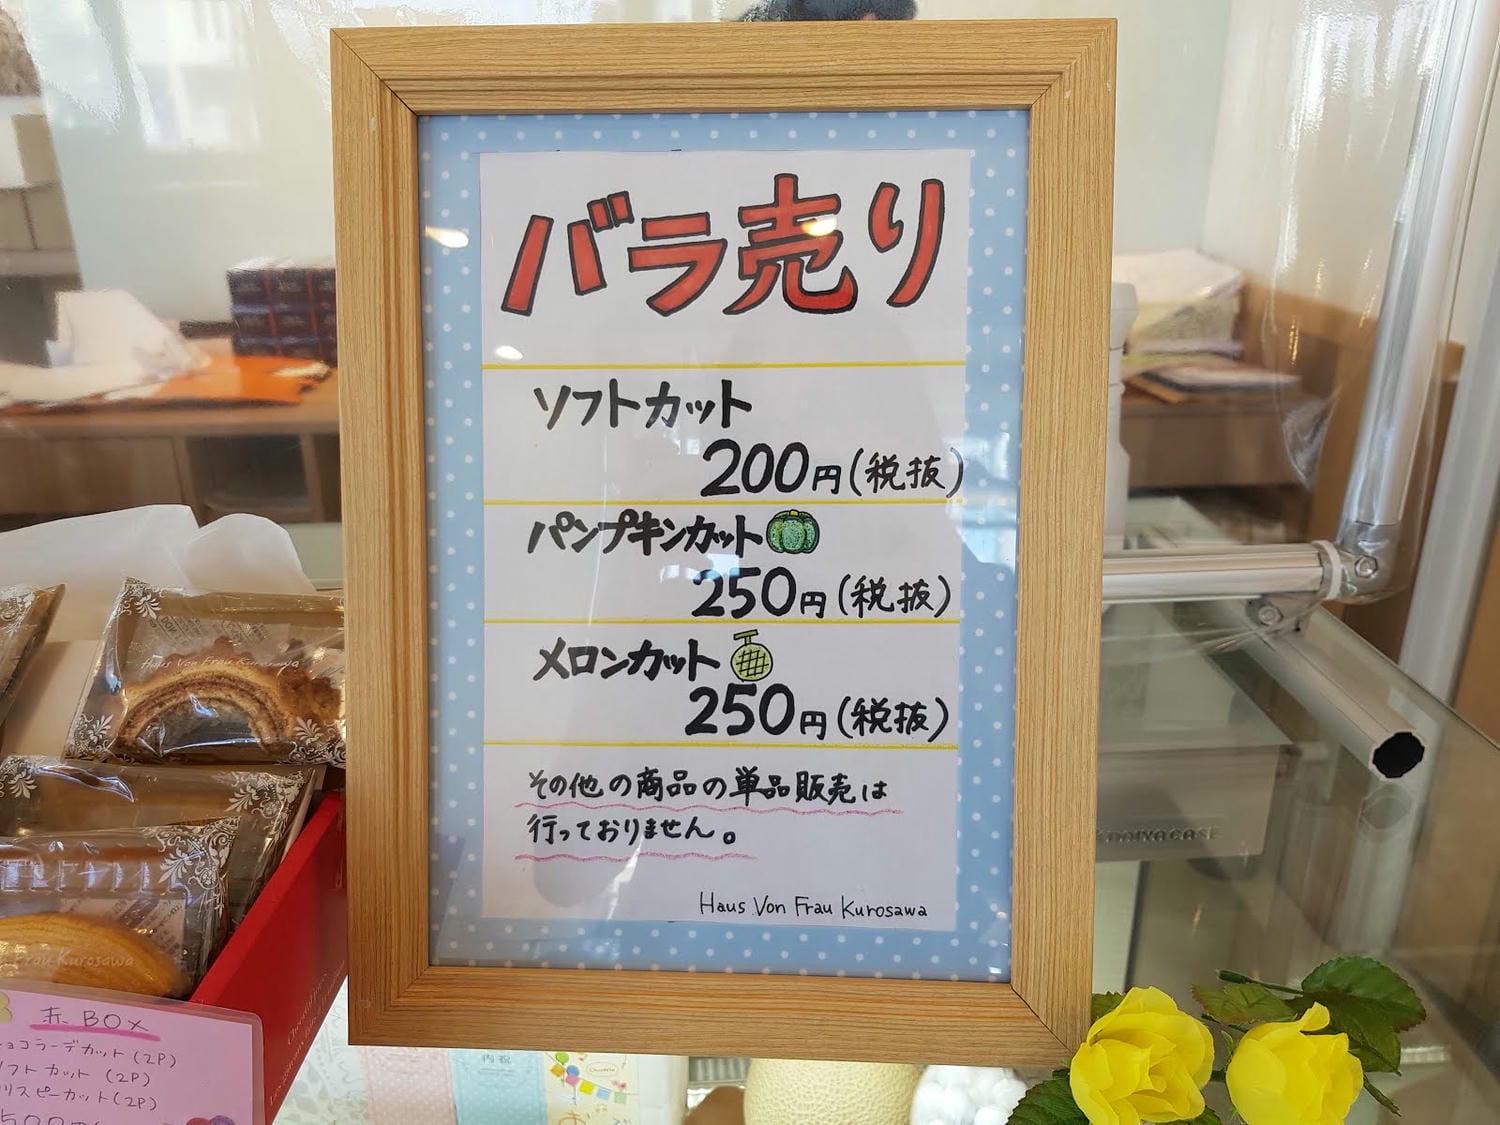 バラ売り
ソフトカット
200円(税抜)
パンプキンカット
250円(税抜)
メロンカット
250円(税抜)
その他の商品の単品販売は
行っておりません。
Haus Von Frau Kurosawa
Haus Von Frau Kurosawa
Frau Kurosawa
赤 BOX
ョコラーデカット(2P)
ソフトカット (2P)
リスピーカット(2P)
DAIYACASE
内祝